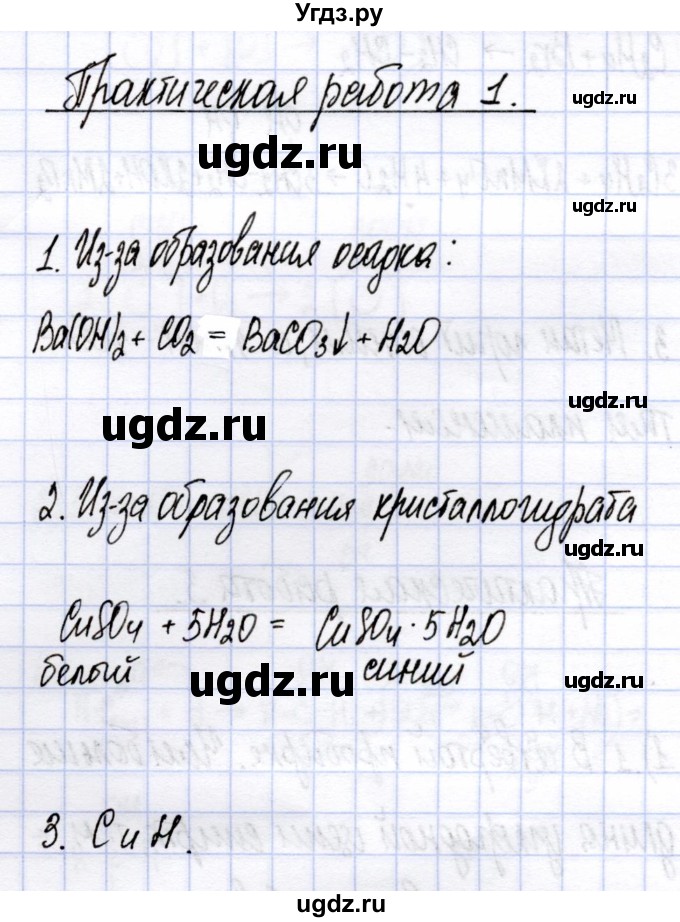 Угдз.ру
Практическая работа 1.
ugdz.ru
ugdz.ru
ugdz.ru
1. Из-за образования осадка:
Ba(OH)2 + CO2 = BaCO3↓ + H2O
ugdz.ru
ugdz.ru
2. Из-за образования кристаллогидрата
ugdz.ru
CuSO4 + 5H2O = CuSO4·5H2O
белый синий
ugdz.ru
ugdz.ru
3. C и H.
ugdz.ru
ugdz.ru